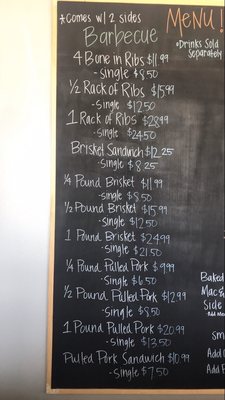 *Comes w/ 2 sides
MENU!
Barbecue
*Drinks Sold
Separately
4 Bone in Ribs $11.99
- Single $8.50
1/2 Rack of Ribs $15.99
- Single $12.50
1 Rack of Ribs $28.99
- Single $24.50
Brisket Sandwich $12.25
- Single $8.25
1/4 Pound Brisket $11.99
- Single $8.50
1/2 Pound Brisket $15.99
- Single $12.50
1 Pound Brisket $24.99
- Single $21.50
1/4 Pound Pulled Pork $9.99
- Single $6.50
1/2 Pound Pulled Pork $12.99
- Single $8.50
1 Pound Pulled Pork $20.99
- Single $13.50
Pulled Pork Sandwich $10.99
- Single $7.50
Baked
Mac &
Side
Add Me
Sm
Add
Add